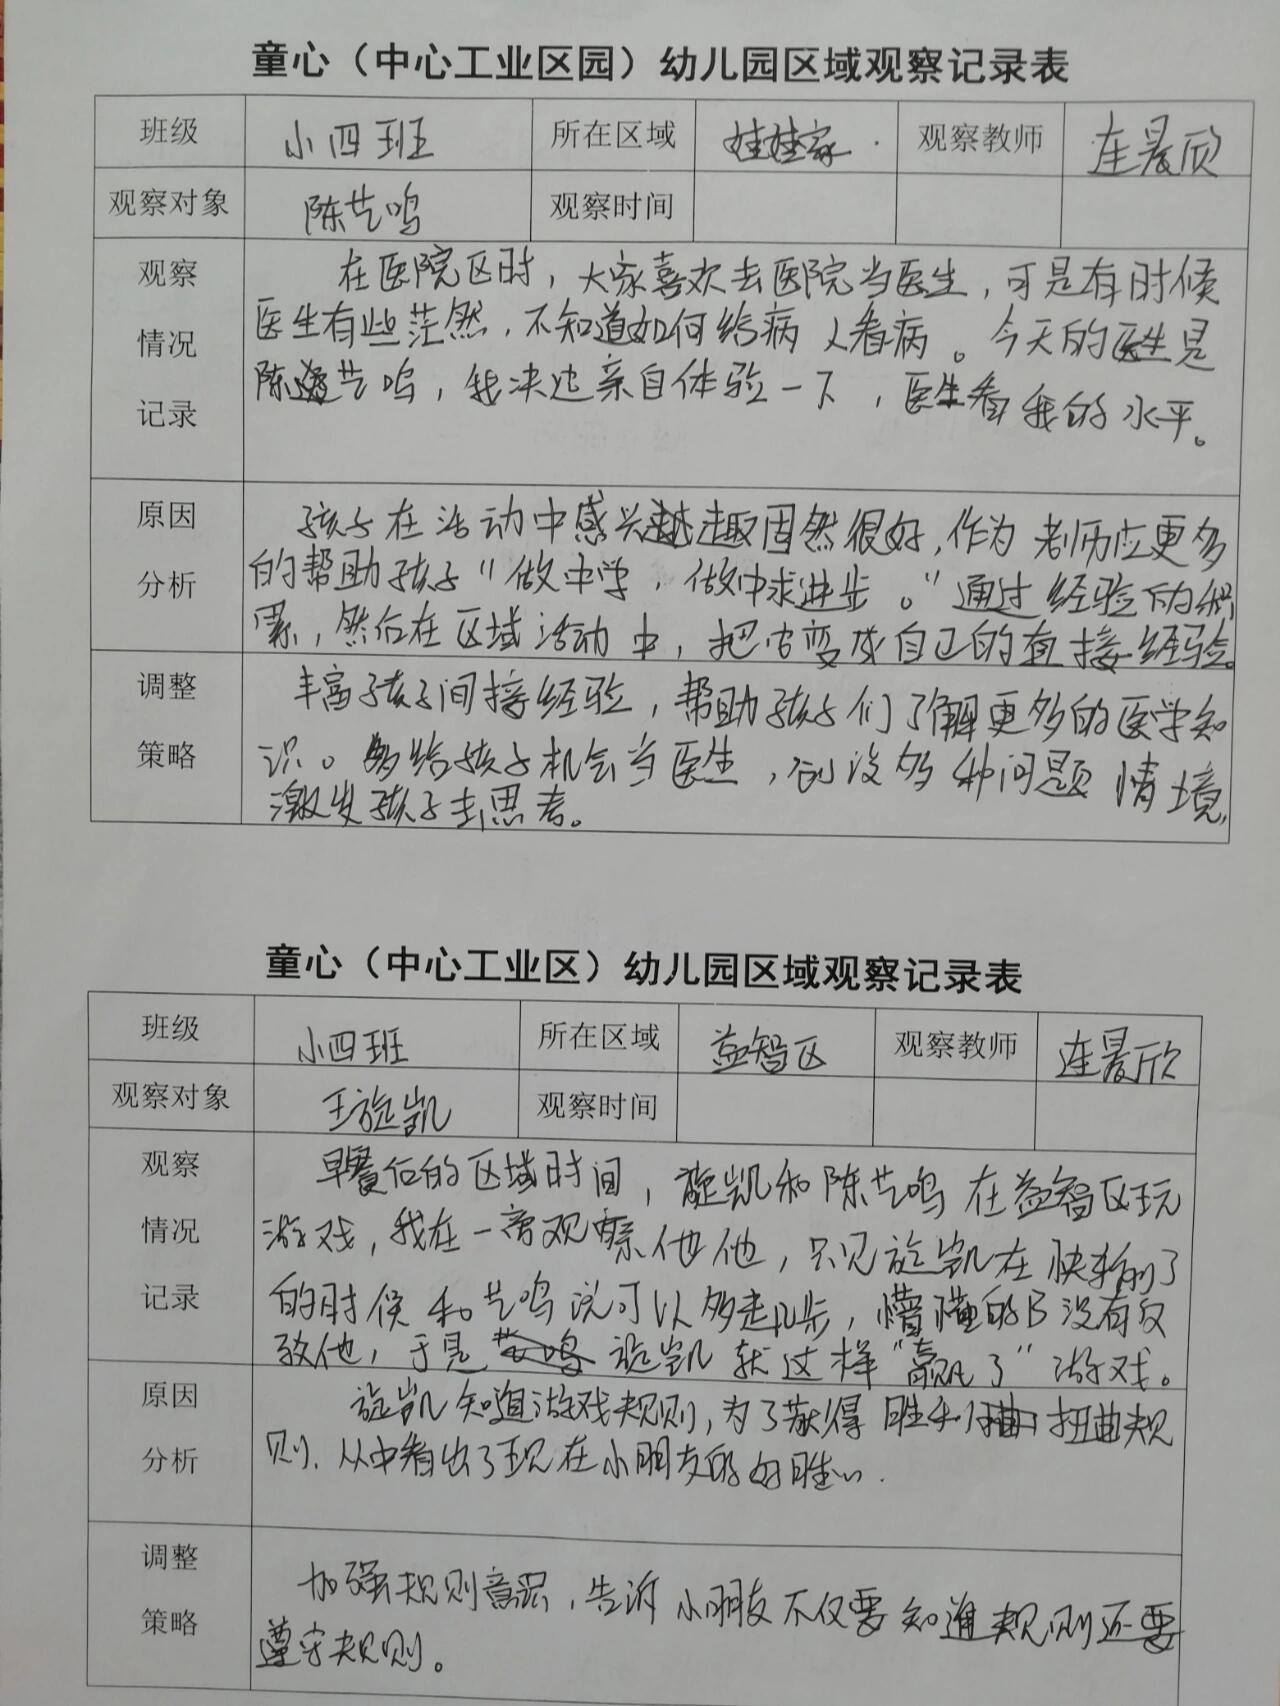 童心（中心工业区园）幼儿园区域观察记录表
班级 小四班 所在区域 娃娃家 观察教师 连晨欣
观察对象 陈艺鸣 观察时间
观察情况记录
在医院区时，大家喜欢去医院当医生，可是有时候
医生有些茫然，不知道如何给病人看病。今天的医生是
陈艺鸣，我决定亲自体验一下，医生看我的水平。
原因分析
孩子在活动中感兴趣固然很好，作为老师应更多
的帮助孩子"做中学，做中求进步。"通过经验下的积
累，然后在区域活动中，把它变成自己的直接经验。
调整策略
丰富孩子间接经验，帮助孩子们了解更多的医学知
识。多给孩子机会当医生，创设多种问题情境，
激发孩子去思考。
童心（中心工业区）幼儿园区域观察记录表
班级 小四班 所在区域 益智区 观察教师 连晨欣
观察对象 王旋凯 观察时间
观察情况记录
早餐后的区域时间，旋凯和陈艺鸣在益智区玩
游戏，我在一旁观察他他，只见旋凯在快输了
的时候和艺鸣说可以多走几步，懵懂的B没有反
驳他，于是旋凯就这样"赢了"游戏。
原因分析
旋凯知道游戏规则，为了获得胜利扭曲规
则，从中看出了现在小朋友的好胜心.
调整策略
加强规则意识，告诉小朋友不仅要知道规则还要
遵守规则。